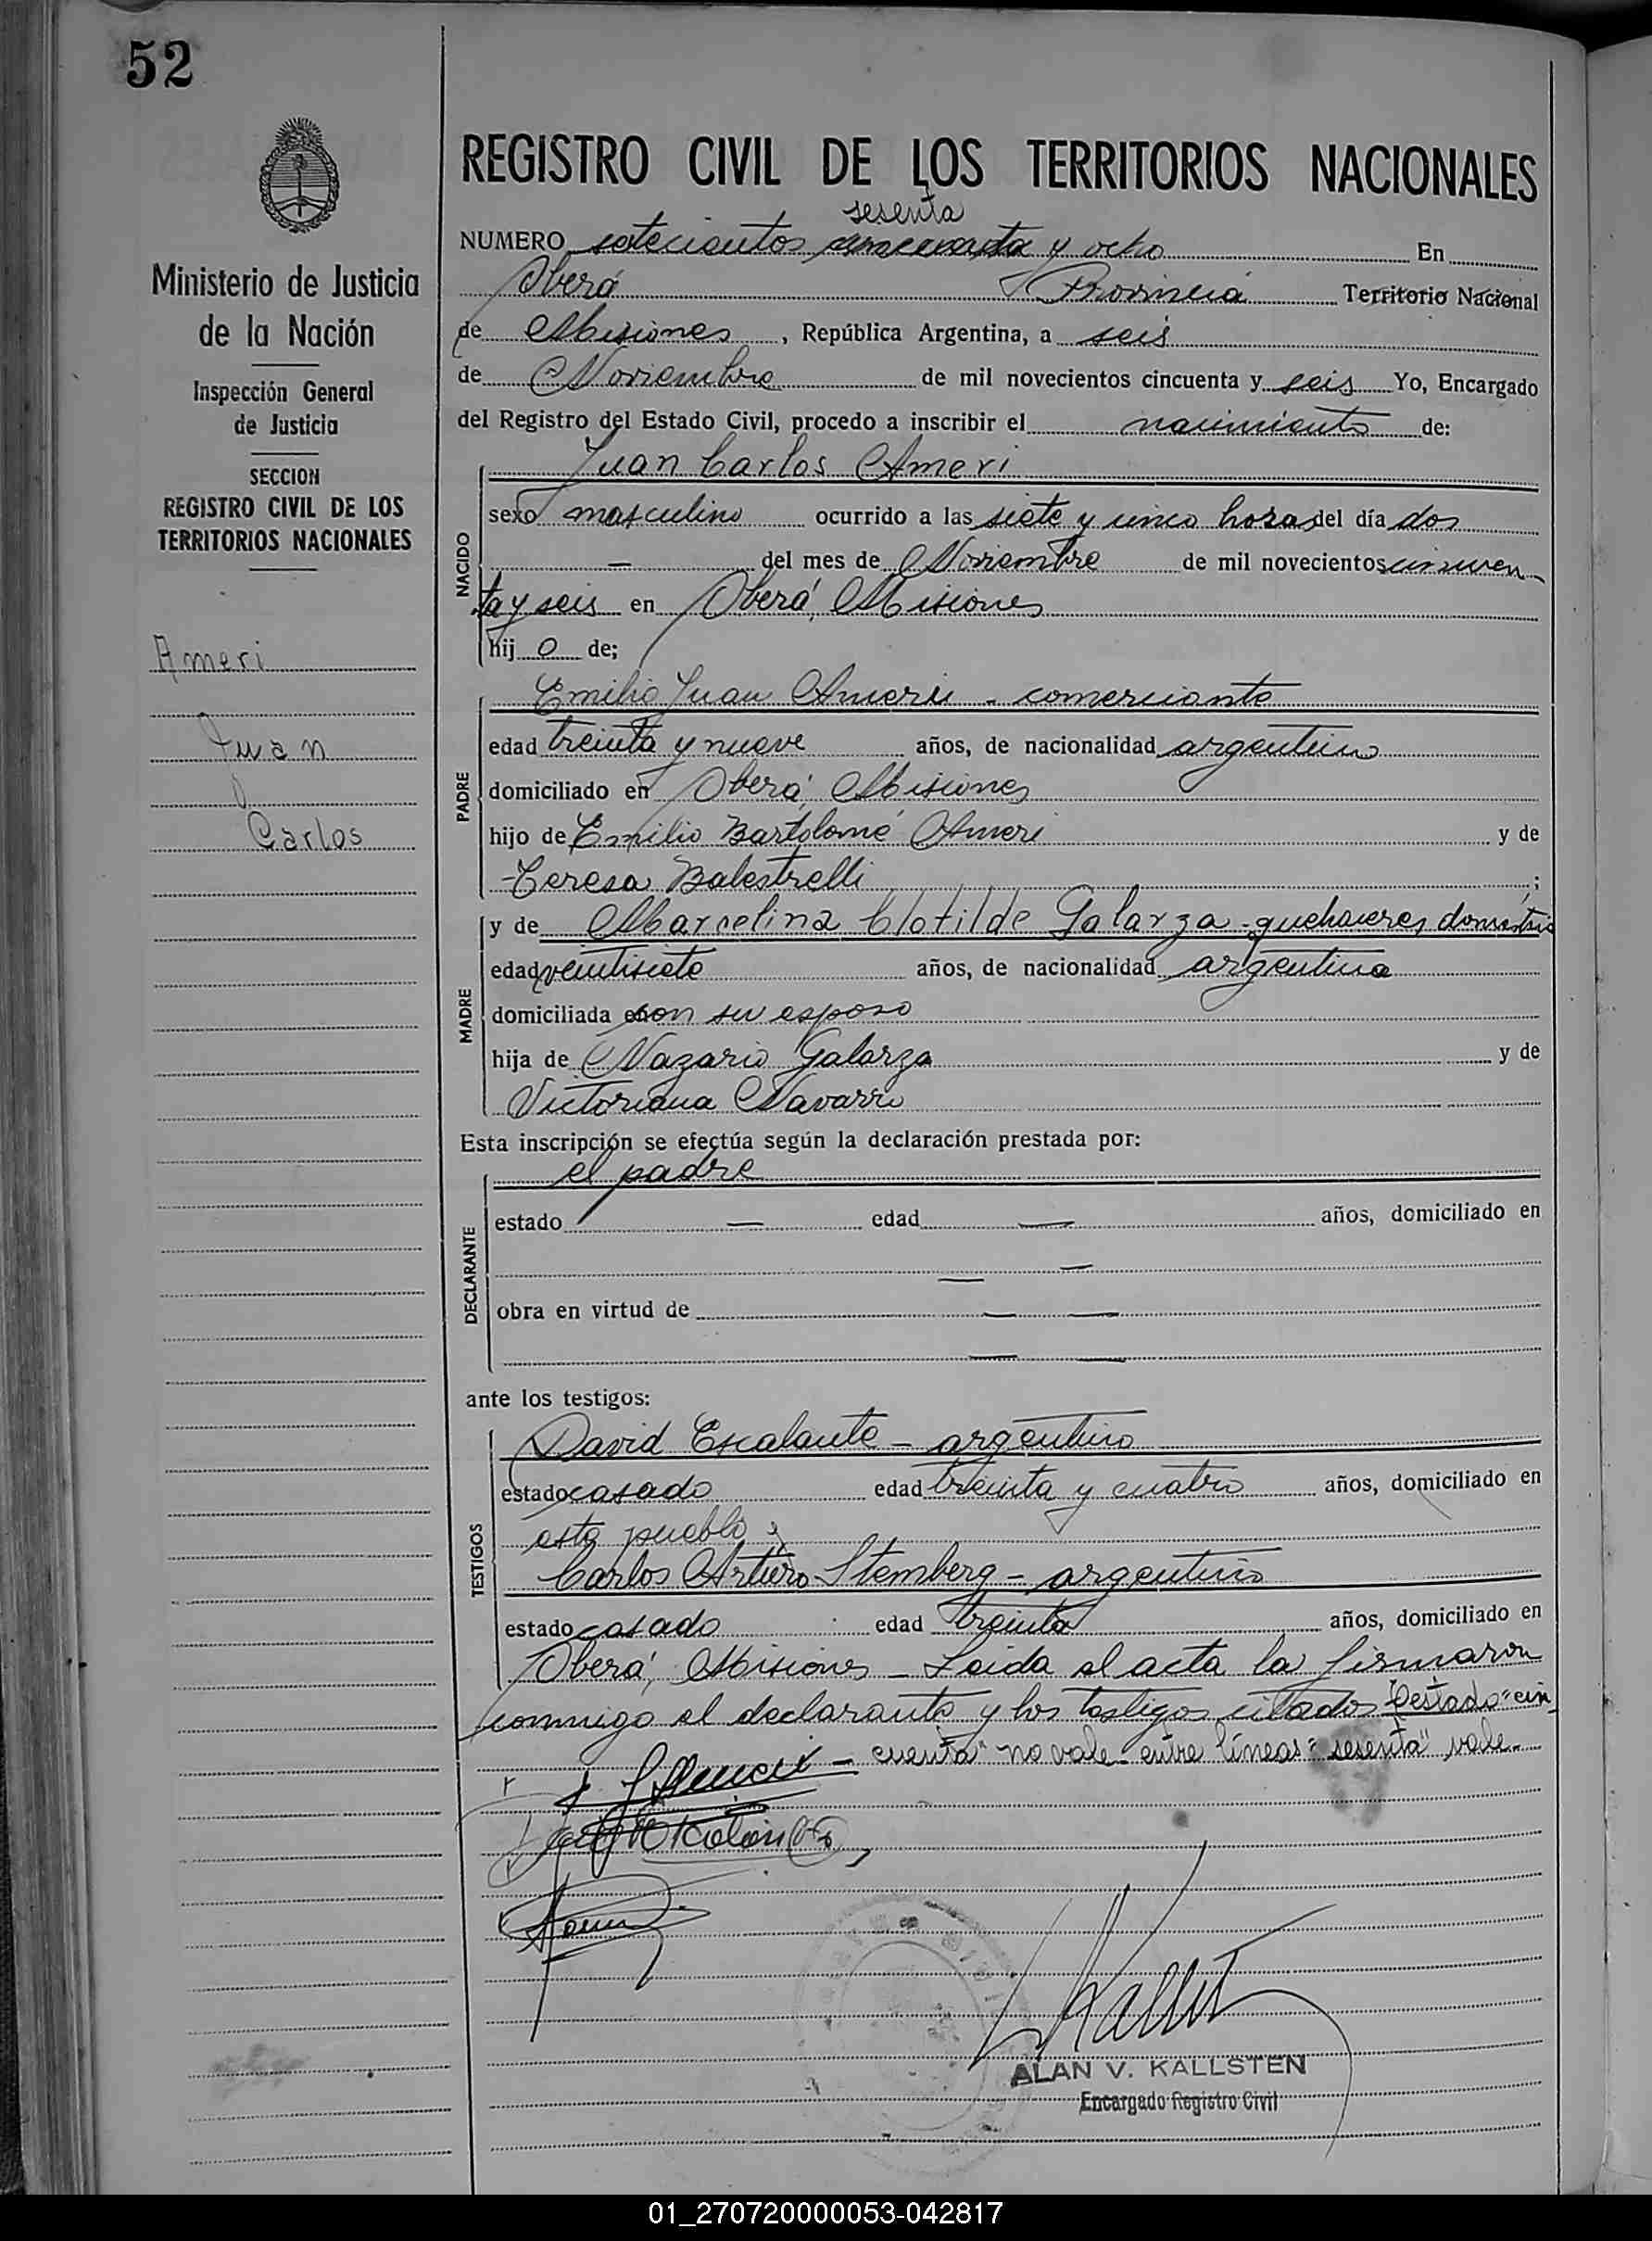 52
Ministerio de Justicia
de la Nación
Inspección General
de Justicia
SECCION
REGISTRO CIVIL DE LOS
TERRITORIOS NACIONALES
Ameri
Juan
Carlos
REGISTRO CIVIL DE LOS TERRITORIOS NACIONALES
sesenta
NUMERO setecientos cincuenta y ocho En
Oberá Provincia Territorio Nacional
de Misiones , República Argentina, a seis
de Noviembre de mil novecientos cincuenta y seis Yo, Encargado
del Registro del Estado Civil, procedo a inscribir el nacimiento de:
NACIDO
Juan Carlos Ameri
sexo masculino ocurrido a las siete y cinco horas del día dos
— del mes de Noviembre de mil novecientos cincuen
ta y seis en Oberá, Misiones
hij o de;
PADRE
Emilio Juan Ameri - comerciante
edad treinta y nueve años, de nacionalidad argentino
domiciliado en Oberá, Misiones
hijo de Emilio Bartolomé Ameri y de
Teresa Balestrelli ;
MADRE
y de Marcelina Clotilde Galarza - quehaceres
edad veintisiete años, de nacionalidad argentina
domiciliada con su esposo
hija de Nazario Galarza y de
Victoriana Navarro
Esta inscripción se efectúa según la declaración prestada por:
DECLARANTE
el padre
estado — edad — años, domiciliado en
— —
obra en virtud de — —
— —
ante los testigos:
TESTIGOS
David Escalante - argentino
estado casado edad treinta y cuatro años, domiciliado en
este pueblo y
Carlos Arturo Stemberg - argentino
estado casado edad treinta años, domiciliado en
Oberá, Misiones - Leida el acta la firmaron
conmigo el declarante y los testigos citados Testado "cin
cuenta" no vale - entre líneas: "sesenta" vale.-
ALAN V. KALLSTEN
Encargado Registro Civil
01_270720000053-042817